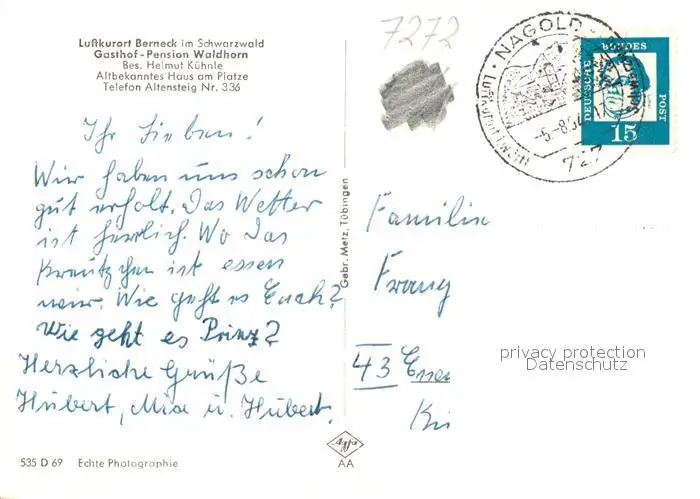 Luftkurort Berneck im Schwarzwald
Gasthof - Pension Waldhorn
Bes. Helmut Kühnle
Altbekanntes Haus am Platze
Telefon Altensteig Nr. 336
7272
NAGOLD
-6.-8.
727
DEUTSCHE BUNDESPOST
15
Ihr Lieben!
Wir haben uns schon
gut erholt. Das Wetter
ist herrlich. Wo das
ist essen
wir. Wie geht es Euch?
Wie geht es Prinz?
Herzliche Grüße
Hubert, Mia u. Hubert.
Gebr. Metz, Tübingen
Familie
Franz
43 Essen
privacy protection
Datenschutz
535 D 69 Echte Photographie
Agfa
AA